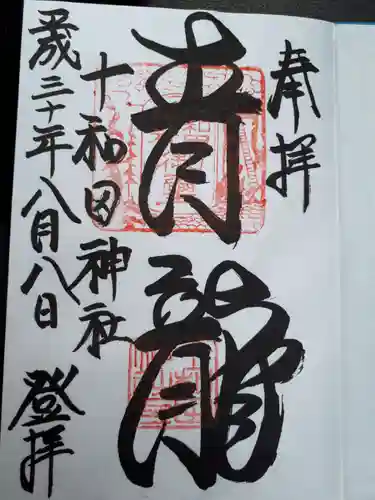 奉拝
青龍
十和田神社
平成三十年八月八日 登拝